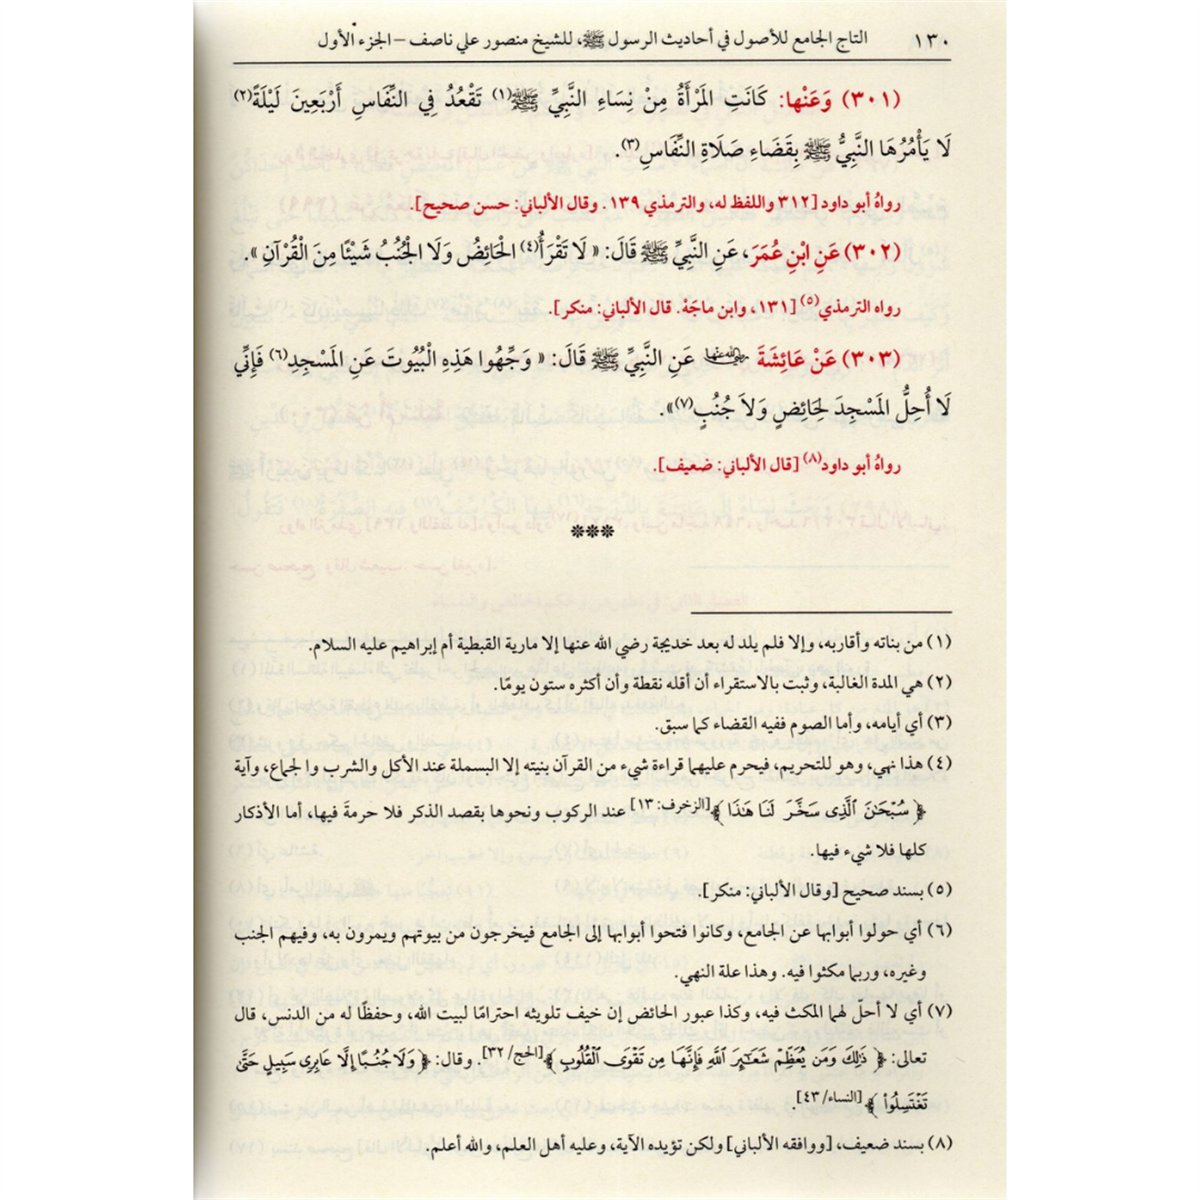 ١٣٠ التاج الجامع للأصول في أحاديث الرسول ﷺ، للشيخ منصور علي ناصف – الجزء الأول
(٣٠١) وَعَنْها: كَانَتِ المَرْأَةُ مِنْ نِسَاءِ النَّبِيِّ ﷺ(١) تَقْعُدُ فِي النِّفَاسِ أَرْبَعِينَ لَيْلَةً(٢)
لَا يَأْمُرُهَا النَّبِيُّ ﷺ بِقَضَاءِ صَلَاةِ النِّفَاسِ(٣).
رواهُ أبو داود [٣١٢ واللفظ له، والترمذي ١٣٩. وقال الألباني: حسن صحيح].
(٣٠٢) عَنِ ابْنِ عُمَرَ، عَنِ النَّبِيِّ ﷺ قَالَ: « لَا تَقْرَأُ(٤) الْحَائِضُ وَلَا الْجُنُبُ شَيْئًا مِنَ الْقُرْآنِ ».
رواه الترمذي(٥) [١٣١، وابن ماجَهْ. قال الألباني: منكر].
(٣٠٣) عَنْ عَائِشَةَ رضي الله عنها عَنِ النَّبِيِّ ﷺ قَالَ: « وَجِّهُوا هَذِهِ الْبُيُوتَ عَنِ المَسْجِدِ(٦) فَإِنِّي
لَا أُحِلُّ المَسْجِدَ لِحَائِضٍ وَلاَ جُنُبٍ(٧)».
رواهُ أبو داود(٨) [قال الألباني: ضعيف].
***
(١) من بناته وأقاربه، وإلا فلم يلد له بعد خديجة رضي الله عنها إلا مارية القبطية أم إبراهيم عليه السلام.
(٢) هي المدة الغالبة، وثبت بالاستقراء أن أقله نقطة وأن أكثره ستون يومًا.
(٣) أي أيامه، وأما الصوم ففيه القضاء كما سبق.
(٤) هذا نهي، وهو للتحريم، فيحرم عليهما قراءة شيء من القرآن بنيته إلا البسملة عند الأكل والشرب والجماع، وآية
﴿ سُبْحَٰنَ ٱلَّذِى سَخَّرَ لَنَا هَٰذَا ﴾[الزخرف: ١٣] عند الركوب ونحوها بقصد الذكر فلا حرمةَ فيها، أما الأذكار
كلها فلا شيء فيها.
(٥) بسند صحيح [وقال الألباني: منكر].
(٦) أي حولوا أبوابها عن الجامع، وكانوا فتحوا أبوابها إلى الجامع فيخرجون من بيوتهم ويمرون به، وفيهم الجنب
وغيره، وربما مكثوا فيه. وهذا علة النهي.
(٧) أي لا أحلّ لهما المكث فيه، وكذا عبور الحائض إن خيف تلويثه احترامًا لبيت الله، وحفظًا له من الدنس، قال
تعالى: ﴿ ذَٰلِكَ وَمَن يُعَظِّمْ شَعَٰٓئِرَ ٱللَّهِ فَإِنَّهَا مِن تَقْوَى ٱلْقُلُوبِ ﴾[الحج/٣٢]. وقال: ﴿ وَلَا جُنُبًا إِلَّا عَابِرِى سَبِيلٍ حَتَّىٰ
تَغْتَسِلُوا۟ ﴾[النساء/٤٣].
(٨) بسند ضعيف، [ووافقه الألباني] ولكن تؤيده الآية، وعليه أهل العلم، والله أعلم.